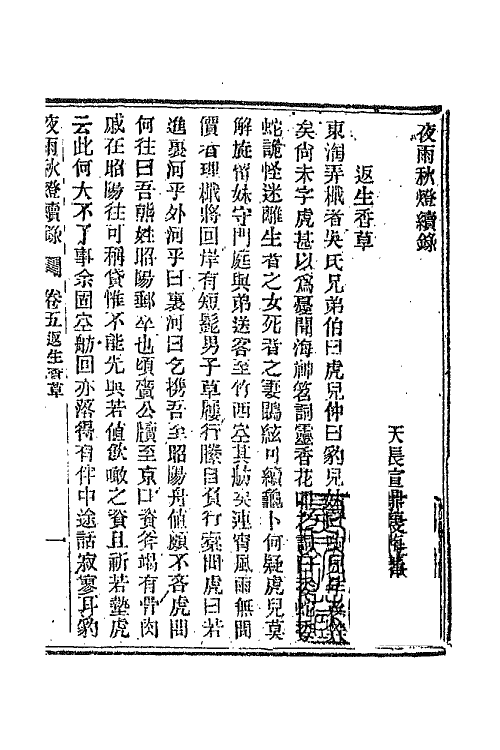 夜雨秋燈續錄
天長宣鼎瘦梅著
返生香草
東淘弄檥者吳氏兄弟伯曰虎兒仲曰豹兒
矣尚未字虎甚以爲憂聞海神筶詞靈香花
蛇詭怪迷離生者之女死者之妻鵾絃可續龜卜何疑虎兒莫
解旋留妹守門庭與弟送客至竹西空其舫矣連宵風雨無問
價者理檥將回岸有短髭男子草屨行縢自負行橐問虎曰若
進裏河乎外河乎曰裏河曰乞携吾至昭陽舟値願不吝虎問
何往曰吾熊姓昭陽郵卒也頃賫公牘至京口資斧竭有骨肉
戚在昭陽往可稱貸惟不能先與若値飲噉之資且祈若墊虎
云此何大不了事余固空舫回亦落得有伴中途話寂寥耳豹
夜雨秋燈續錄 卷五返生香草 一